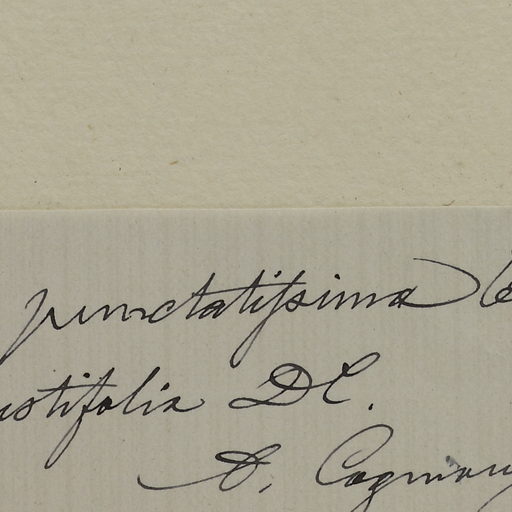 punctatissima
ustifolia DC.
A. Cogniau